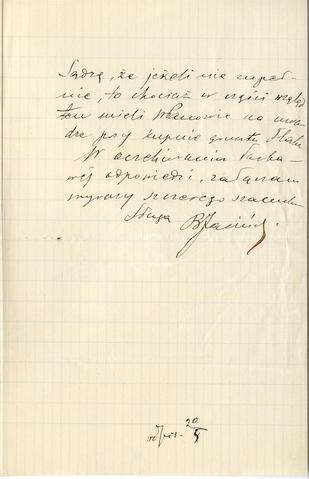 Sądzę, że jeżeli nie zupeł-
nie, to chociaż w części wzgląd
ten mieli Panowie na uwa-
dze przy kupnie gruntu
W oczekiwaniu łaska-
wej odpowiedzi, załączam
wyrazy szczerego szacunku
Sługa
odpis. 20/4